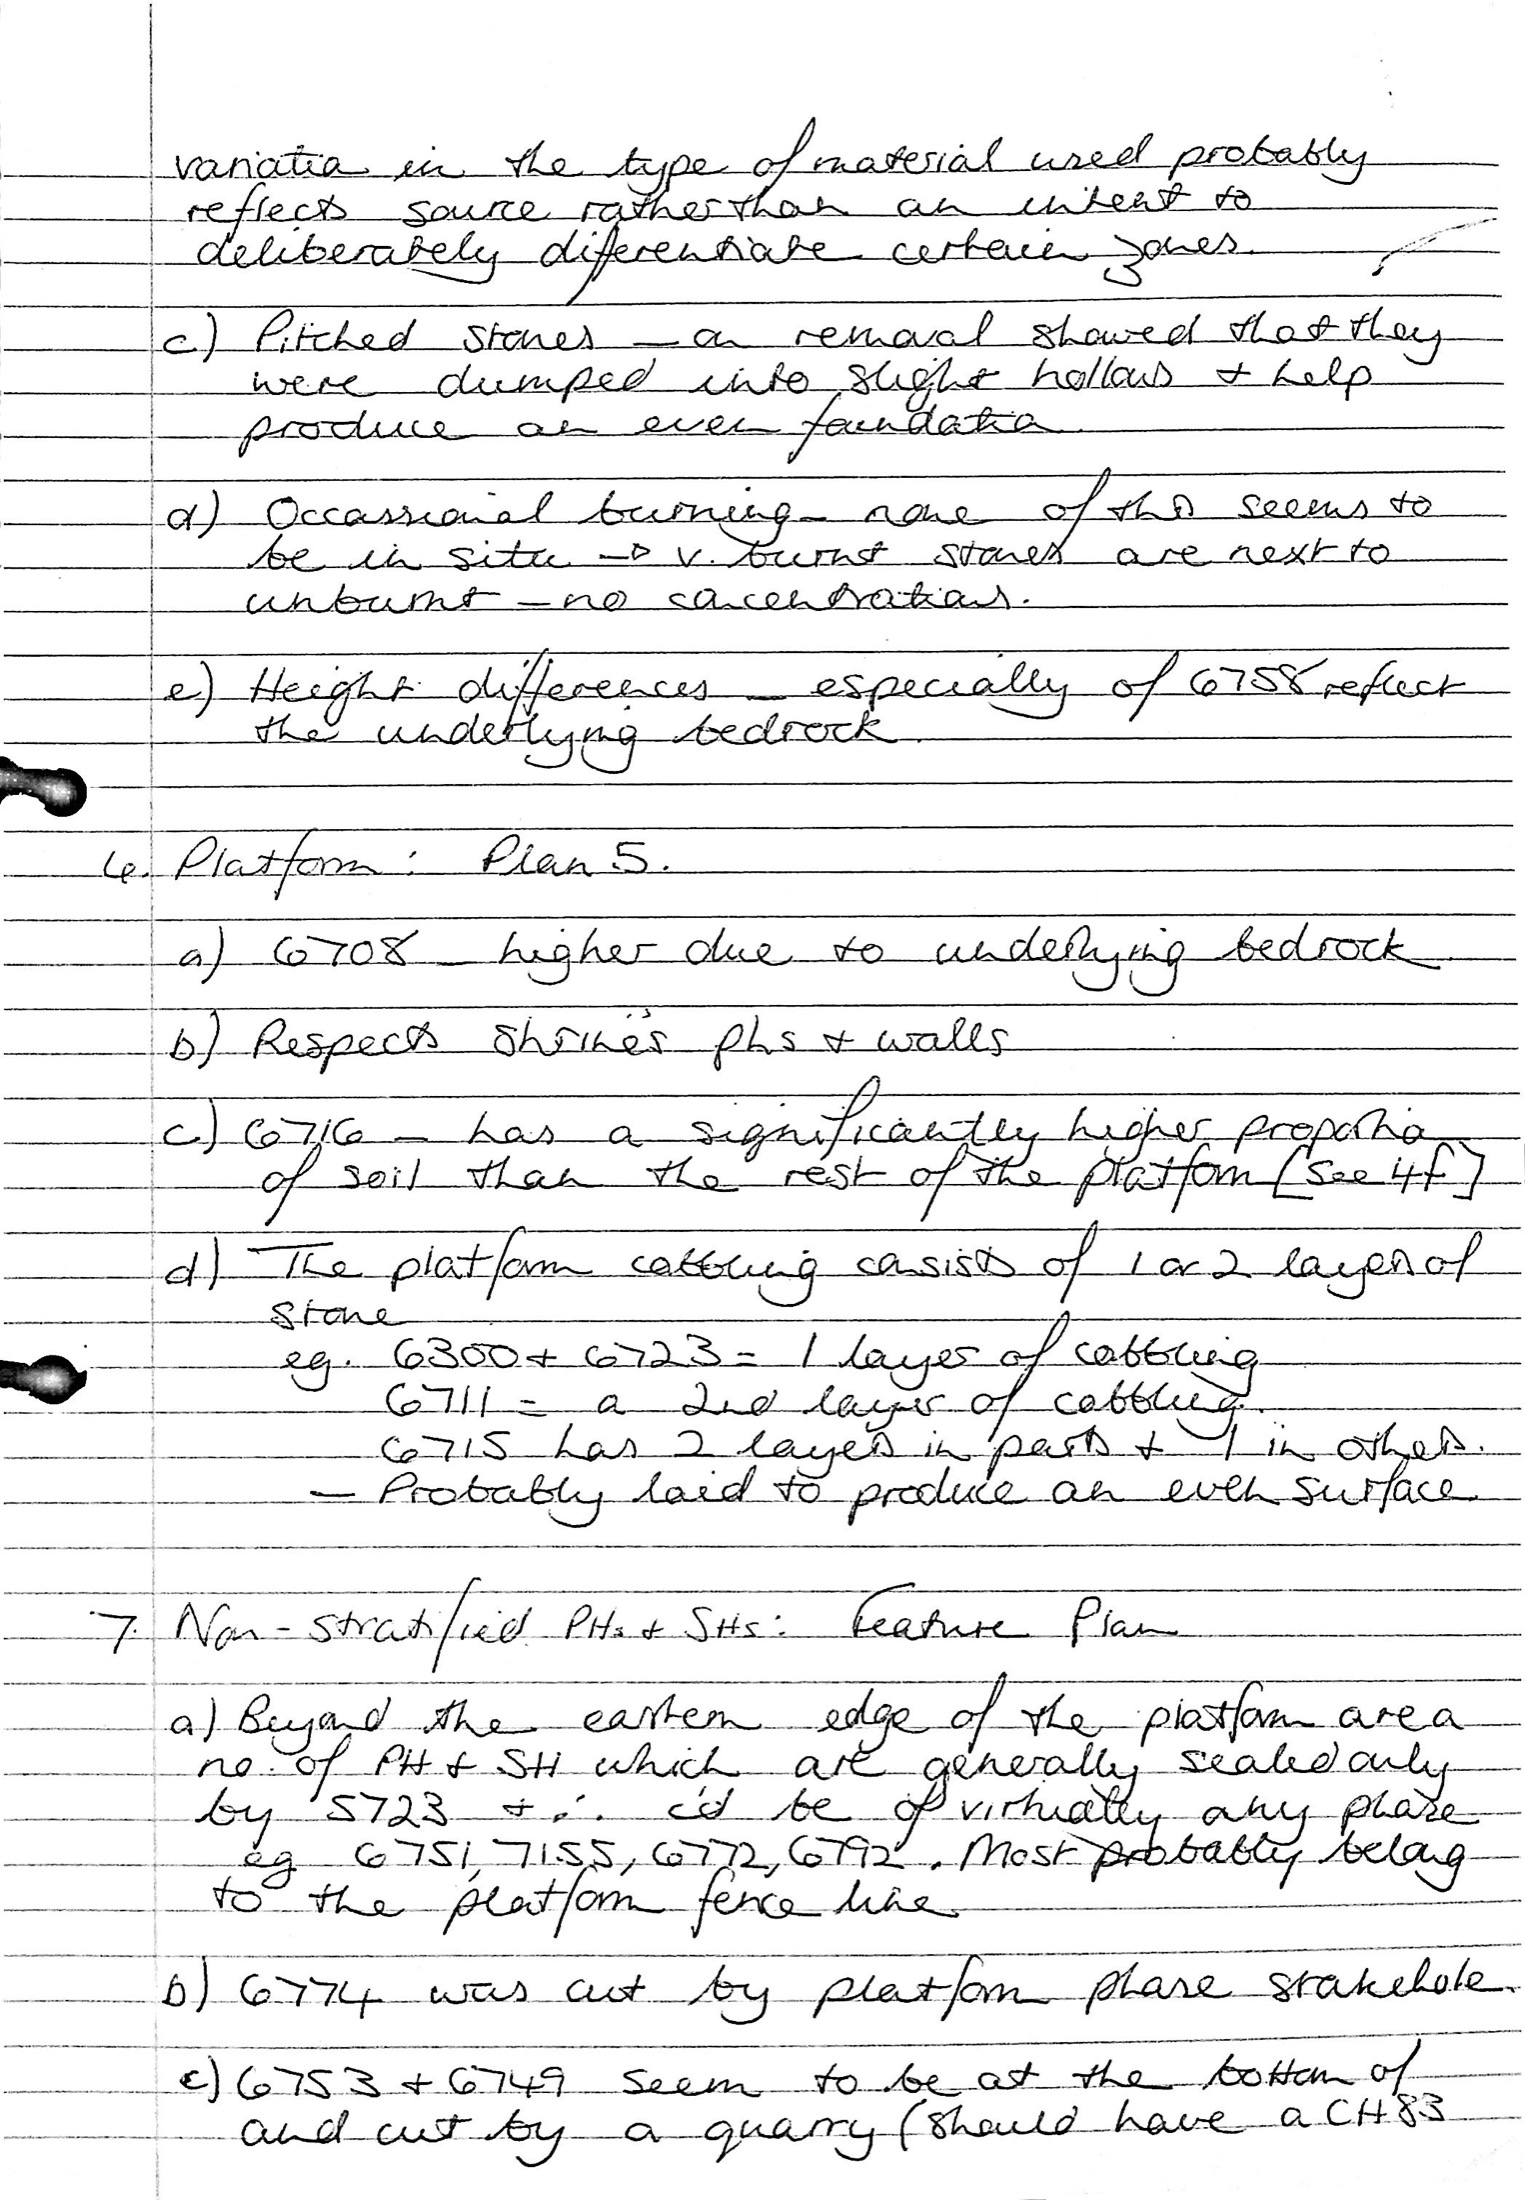 variation in the type of material used probably
reflects source rather than an intent to
deliberately diferentiate certain zones.
c) Pitched stones – on removal showed that they
were dumped into slight hollows + help
produce an even foundation
d) Occassional burning – none of this seems to
be in situ → v. burnt stones are next to
unburnt – no concentrations.
e) Height differences – especially of 6758 reflect
the underlying bedrock.
6. Platform: Plan 5.
a) 6708 – higher due to underlying bedrock
b) Respects shrine's phs + walls
c) 6716 – has a significantly higher proportion
of soil than the rest of the platform [See 4f]
d) The platform cobbling consists of 1 or 2 layers of
stone
eg. 6300 + 6723 = 1 layer of cobbling
6711 = a 2nd layer of cobbling.
6715 has 2 layers in parts + 1 in others.
– Probably laid to produce an even surface.
7. Non-stratified PHs + SHs: Feature Plan
a) Beyond the eastern edge of the platform are a
no. of PH + SH which are generally sealed only
by 5723 + ∴ c'd be of virtually any phase
eg 6751, 7155, 6772, 6792. Most probably belong
to the platform fence line.
b) 6774 was cut by platform phase stakehole.
c) 6753 + 6749 seem to be at the bottom of
and cut by a quarry (should have a CH83